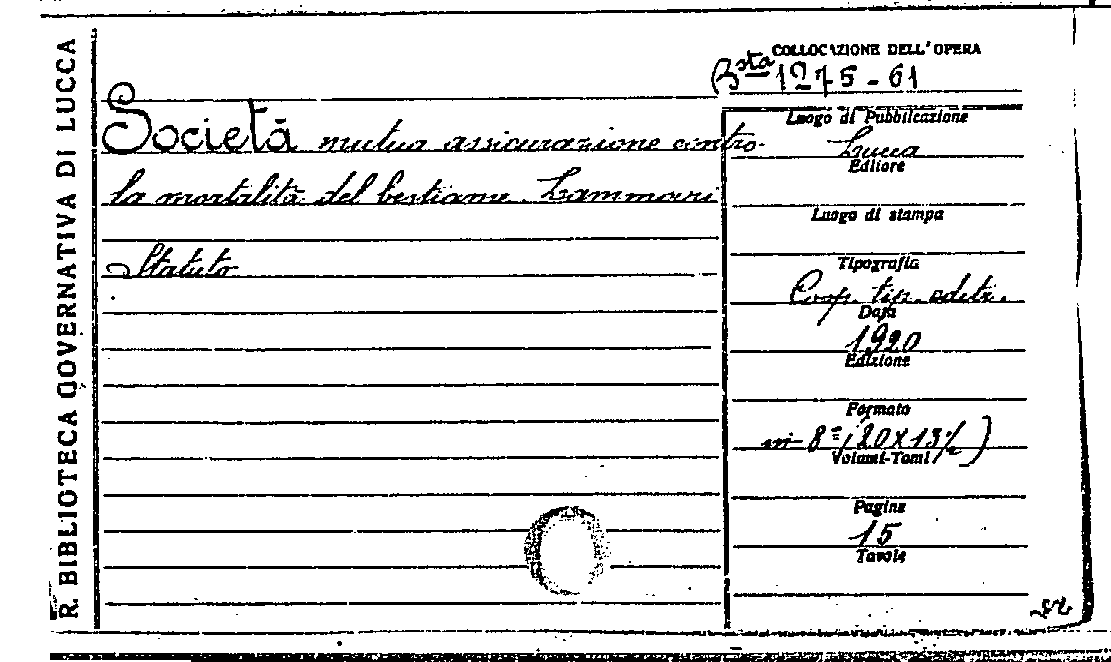 R. BIBLIOTECA GOVERNATIVA DI LUCCA
COLLOCAZIONE DELL'OPERA
Bsta 1275-61
Società mutua assicurazione contro
la mortalità del bestiame. Lammari
Statuto
Luogo di Pubblicazione
Lucca
Editore
Luogo di stampa
Tipografia
Coop. tip. editr.
Data
1920
Edizione
Formato
in-8º (20x13½)
Volumi-Tomi
Pagine
15
Tavole